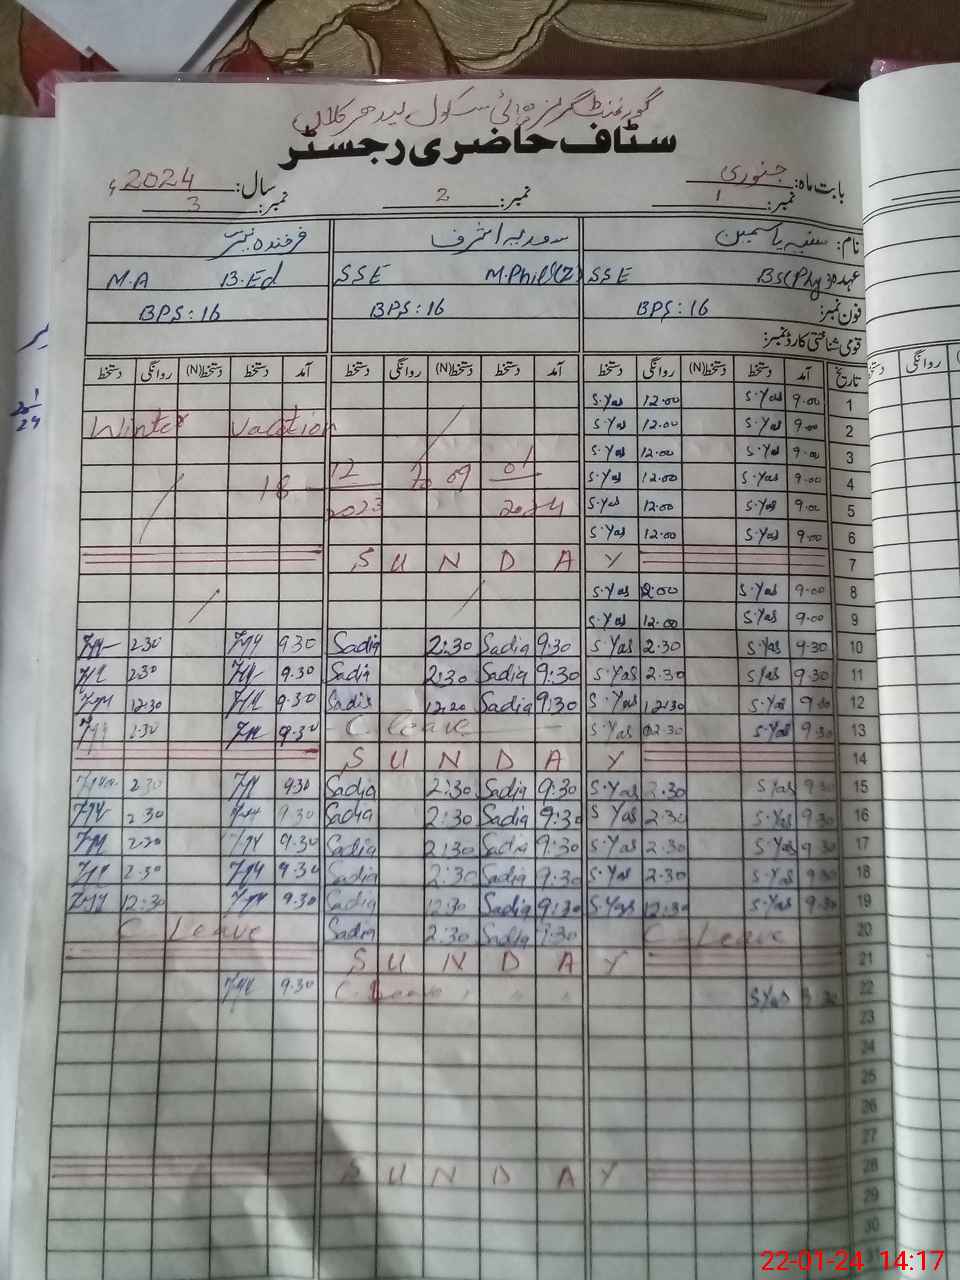 گورنمنٹ گرلز ہائی سکول لیدھر کلاں
سٹاف حاضری رجسٹر
بابت ماہ: جنوری سال: 2024ء
نمبر: 1 نمبر: 2 نمبر: 3
نام: سعدیہ اشرف
عہدہ: BSc(Phy) SSE M.Phil(Z) SSE B.Ed M.A
فون نمبر: BPS:16 BPS:16 BPS:16
قومی شناختی کارڈ نمبر:
تاریخ آمد دستخط دستخط(N) روانگی دستخط آمد دستخط دستخط(N) روانگی دستخط آمد دستخط دستخط(N) روانگی دستخط
S.Yas 12.00 S.Yas 9.00 1
Winter Vacation S.Yas 12.00 S.Yas 9.00 2
S.Yas 12.00 S.Yas 9.00 3
18 12 2023 to 09 01 2024 S.Yas 12.00 S.Yas 9.00 4
S.Yas 12.00 S.Yas 9.00 5
S.Yas 12.00 S.Yas 9.00 6
S U N D A Y 7
S.Yas 12.00 S.Yas 9.00 8
S.Yas 12.00 S.Yas 9.00 9
2.30 9.30 Sadia 2:30 Sadia 9:30 S.Yas 2.30 S.Yas 9.30 10
2.30 9.30 Sadia 2:30 Sadia 9:30 S.Yas 2.30 S.Yas 9.30 11
12:30 9.30 Sadia 12:20 Sadia 9:30 S.Yas 12.30 S.Yas 9.30 12
2.30 9.30 C. Leave S.Yas 02.30 S.Yas 9.30 13
S U N D A Y 14
2.30 9.30 Sadia 2:30 Sadia 9:30 S.Yas 2.30 S.Yas 9.30 15
2.30 9.30 Sadia 2:30 Sadia 9:30 S.Yas 2.30 S.Yas 9.30 16
2.30 9.30 Sadia 2:30 Sadia 9:30 S.Yas 2.30 S.Yas 9.30 17
2.30 9.30 Sadia 2:30 Sadia 9:30 S.Yas 2.30 S.Yas 9.30 18
12.30 9.30 Sadia 12:30 Sadia 9:30 S.Yas 12.30 S.Yas 9.30 19
C Leave Sadia 2:30 Sadia 9:30 C-Leave 20
S U N D A Y 21
9.30 C. Leave S.Yas 9.30 22
23
24
25
26
27
S U N D A Y 28
29
30
22-01-24 14:17